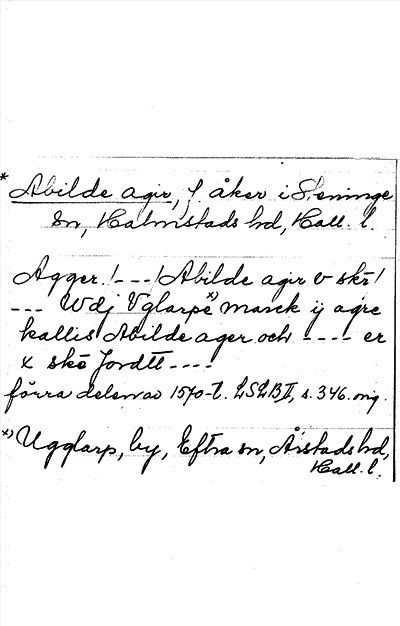 * Abilde agir, f. åker i Steninge
sn, Halmstads hd, Hall. l.
Agger. ! - - - / Abilde agir v skr /
- - - Wdj Vglarpe x) marck ij agre
kallis Abilde ager och - - - - er
x skr Jordtt - - - -
förra delen av 1570-t. LSLB II, s. 346. orig.
x) Ugglarp, by, Eftra sn, Årstads hd,
Hall. l.